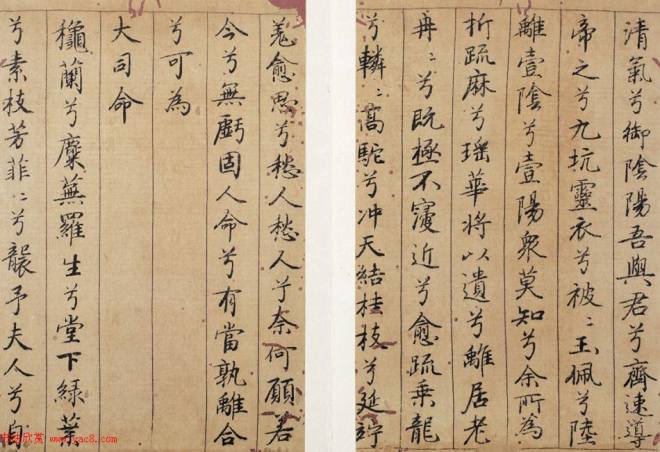 清氣兮御陰陽吾與君兮齊速導
帝之兮九坑靈衣兮被〻玉佩兮陸
離壹陰兮壹陽衆莫知兮余所為
折疏麻兮瑶華將以遺兮離居老
冉〻兮既極不寖近兮愈疏乗龍
兮轔〻高駝兮冲天結桂枝兮延竚
羌愈思兮愁人愁人兮奈何願若
今兮無虧固人命兮有當孰離合
兮可為
大司命
穐蘭兮麋蕪羅生兮堂下緑葉
兮素枝芳菲〻兮襲予夫人兮自
www.yac8.com